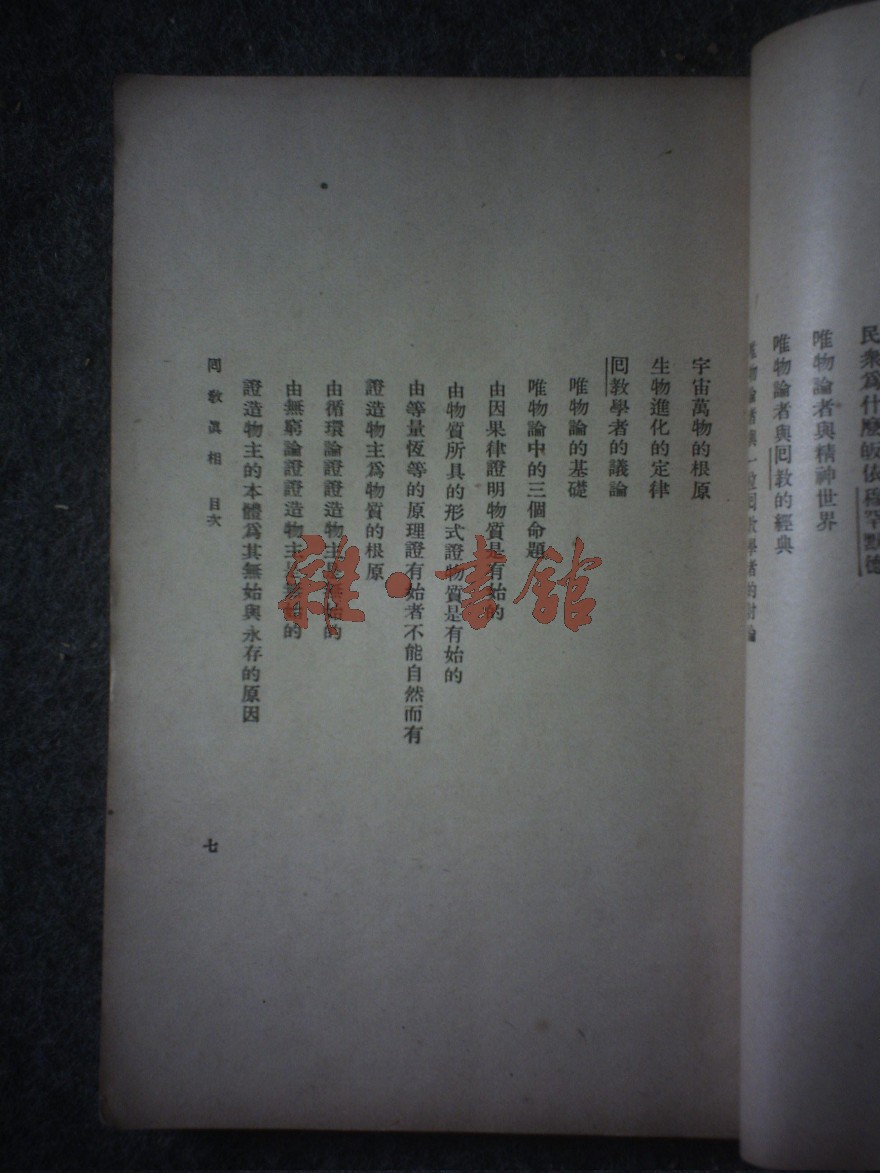 民衆爲什麼皈依穆罕默德
唯物論者與精神世界
唯物論者與囘教的經典
唯物論者與一位囘教學者的討論
宇宙萬物的根原
生物進化的定律
囘教學者的議論
唯物論的基礎
唯物論中的三個命題
由因果律證明物質是有始的
由物質所具的形式證物質是有始的
由等量恆等的原理證有始者不能自然而有
證造物主爲物質的根原
由循環論證證造物主是無始的
由無窮論證證造物主是無始的
證造物主的本體爲其無始與永存的原因
囘教眞相 目次
七
雜·書館